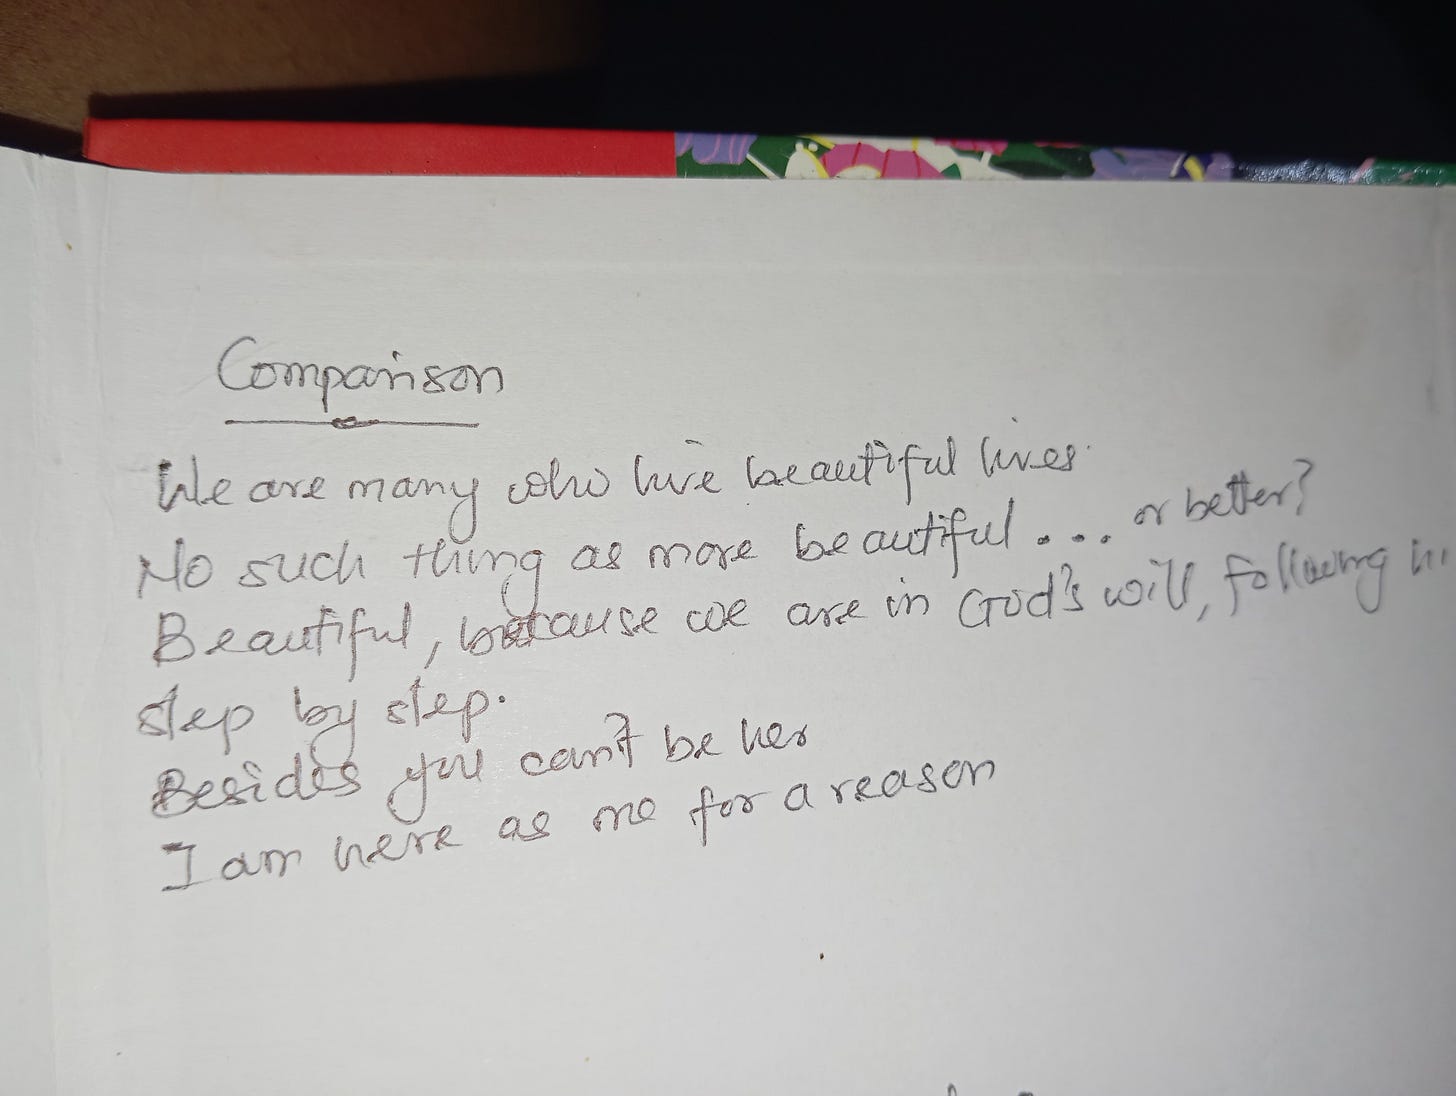 Comparison
We are many who live beautiful lives.
No such thing as more beautiful ... or better?
Beautiful, because we are in God's will, following
step by step.
Besides you can't be her
I am here as me for a reason